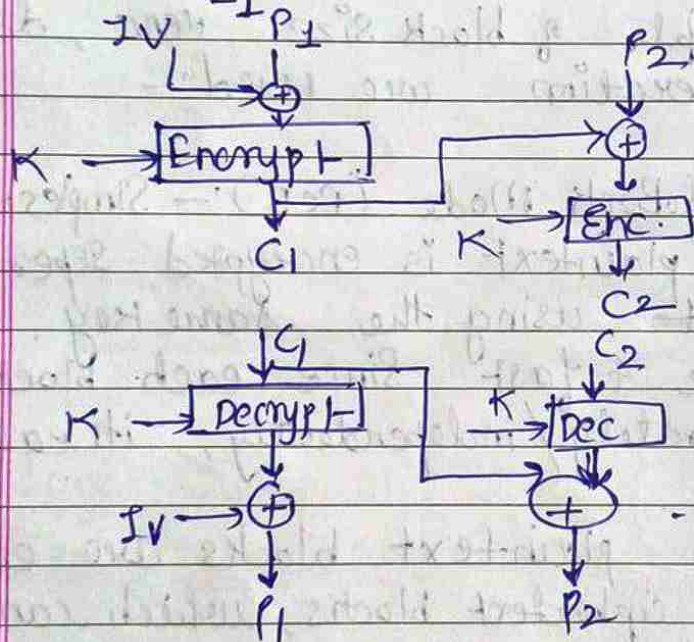 IV P1 P2
K Encrypt
K Enc.
C1
C2
C1 C2
K Decrypt K Dec
IV
P1 P2